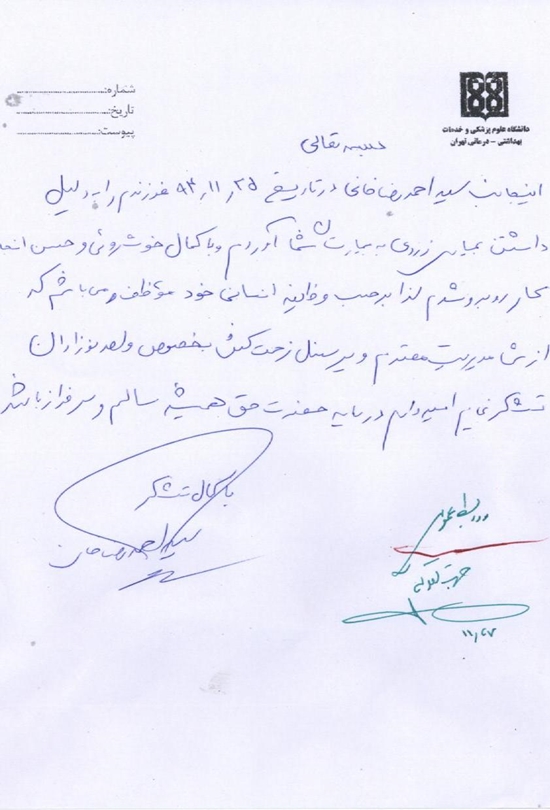 دانشگاه علوم پزشکی و خدمات
بهداشتی - درمانی تهران
شماره:
تاریخ:
پیوست:
بسمه تعالی
اینجانب سید احمدرضا خانی در تاریخ ۹۴/۱۱/۲۵ فرزندم را به دلیل
داشتن بیماری زردی به بیمارستان شما آوردم و با کمال خوشروئی و حسن انجا
کار روبرو شدم لذا بر حسب وظیفه انسانی خود موظف می باشم که
از شما مدیریت محترم و پرسنل زحمت کش بخصوص واحد نوزادان
تشکر نمایم امیدوارم در سایه حضرت حق همیشه سالم و سرفراز باشید
با کمال تشکر
سید احمدرضا خانی
روابط عمومی
جهت
۱۱/۲۷